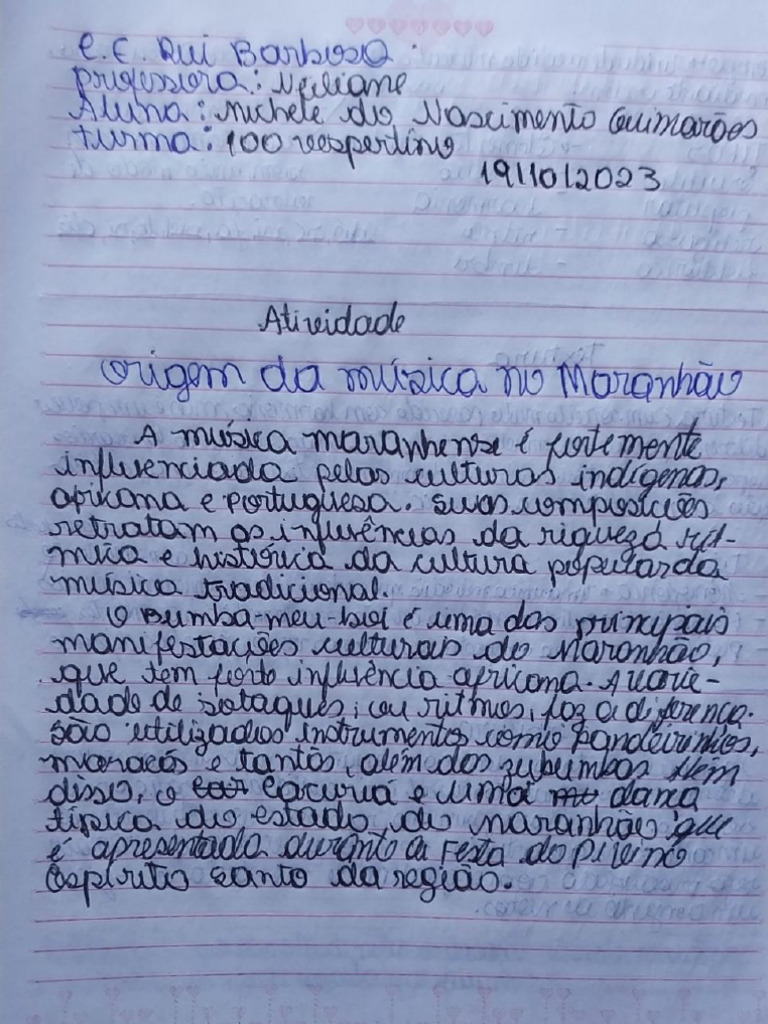 E.E. Rui Barbosa.
professora: Neiliane
Aluna: Michele do Nascimento Guimarães
turma: 100 vespertino
19/10/2023
Atividade
Origem da música no Maranhão
A música maranhense é fortemente
influenciada pelas culturas indígenas,
africana e portuguesa. Suas composições
retratam as influências da riqueza rít-
mica e histórica da cultura popular da
música tradicional.
O Bumba-meu-boi é uma das principais
manifestações culturais do Maranhão,
que tem forte influência africana. A varie-
dade de sotaques, ou ritmos, faz a diferença.
São utilizados instrumentos como pandeirinhos,
maracás e tantãs, além dos zabumbas Além
disso, o cacuriá é uma dança
típica do estado do Maranhão que
é apresentada durante a Festa do Divino
Espírito Santo da região.